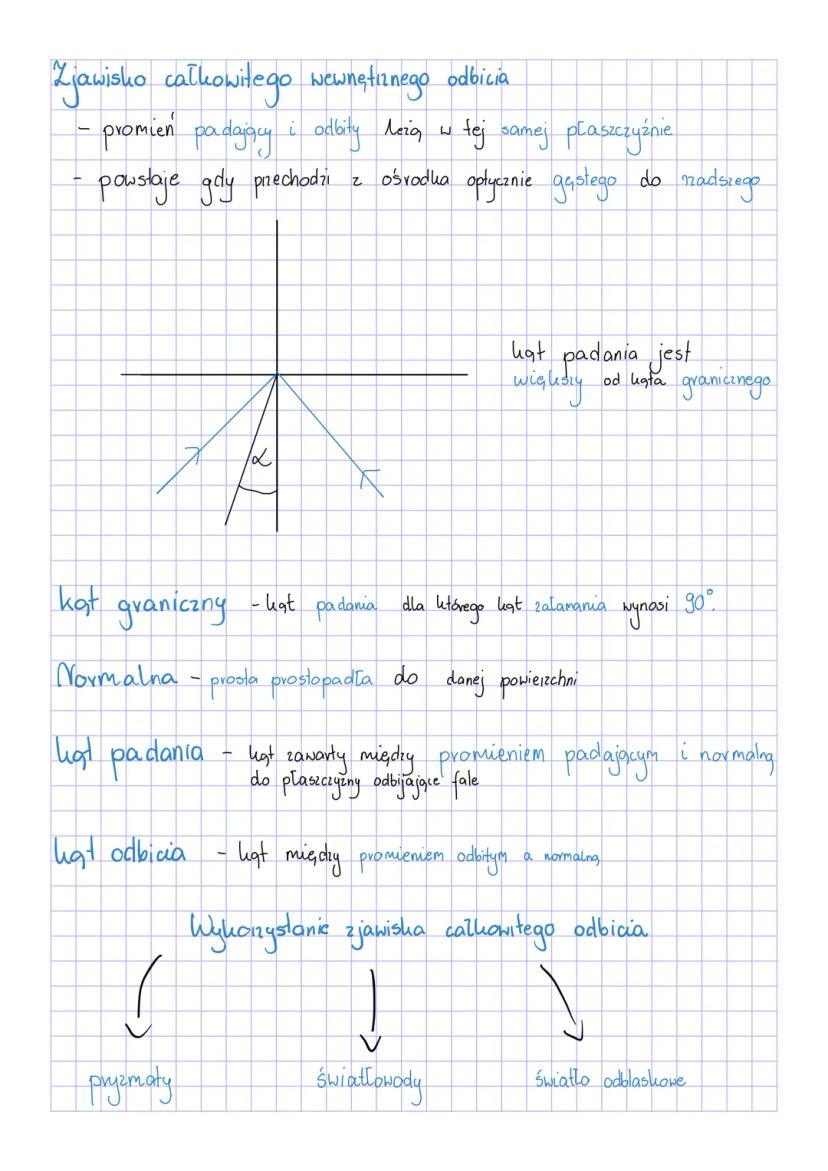 Zjawisko całkowitego wewnętrznego odbicia
- promień padający i odbity leżą w tej samej płaszczyźnie
- powstaje gdy przechodzi z ośrodka optycznie gęstego do rzadszego
kąt padania jest
większy od kąta granicznego
α
kąt graniczny - kąt padania dla którego kąt załamania wynosi 90°.
Normalna - prosta prostopadła do danej powierzchni
kąt padania - kąt zawarty między promieniem padającym i normalną
do płaszczyzny odbijające fale
kąt odbicia - kąt między promieniem odbitym a normalną
Wykorzystanie zjawiska całkowitego odbicia
pryzmaty światłowody światło odblaskowe